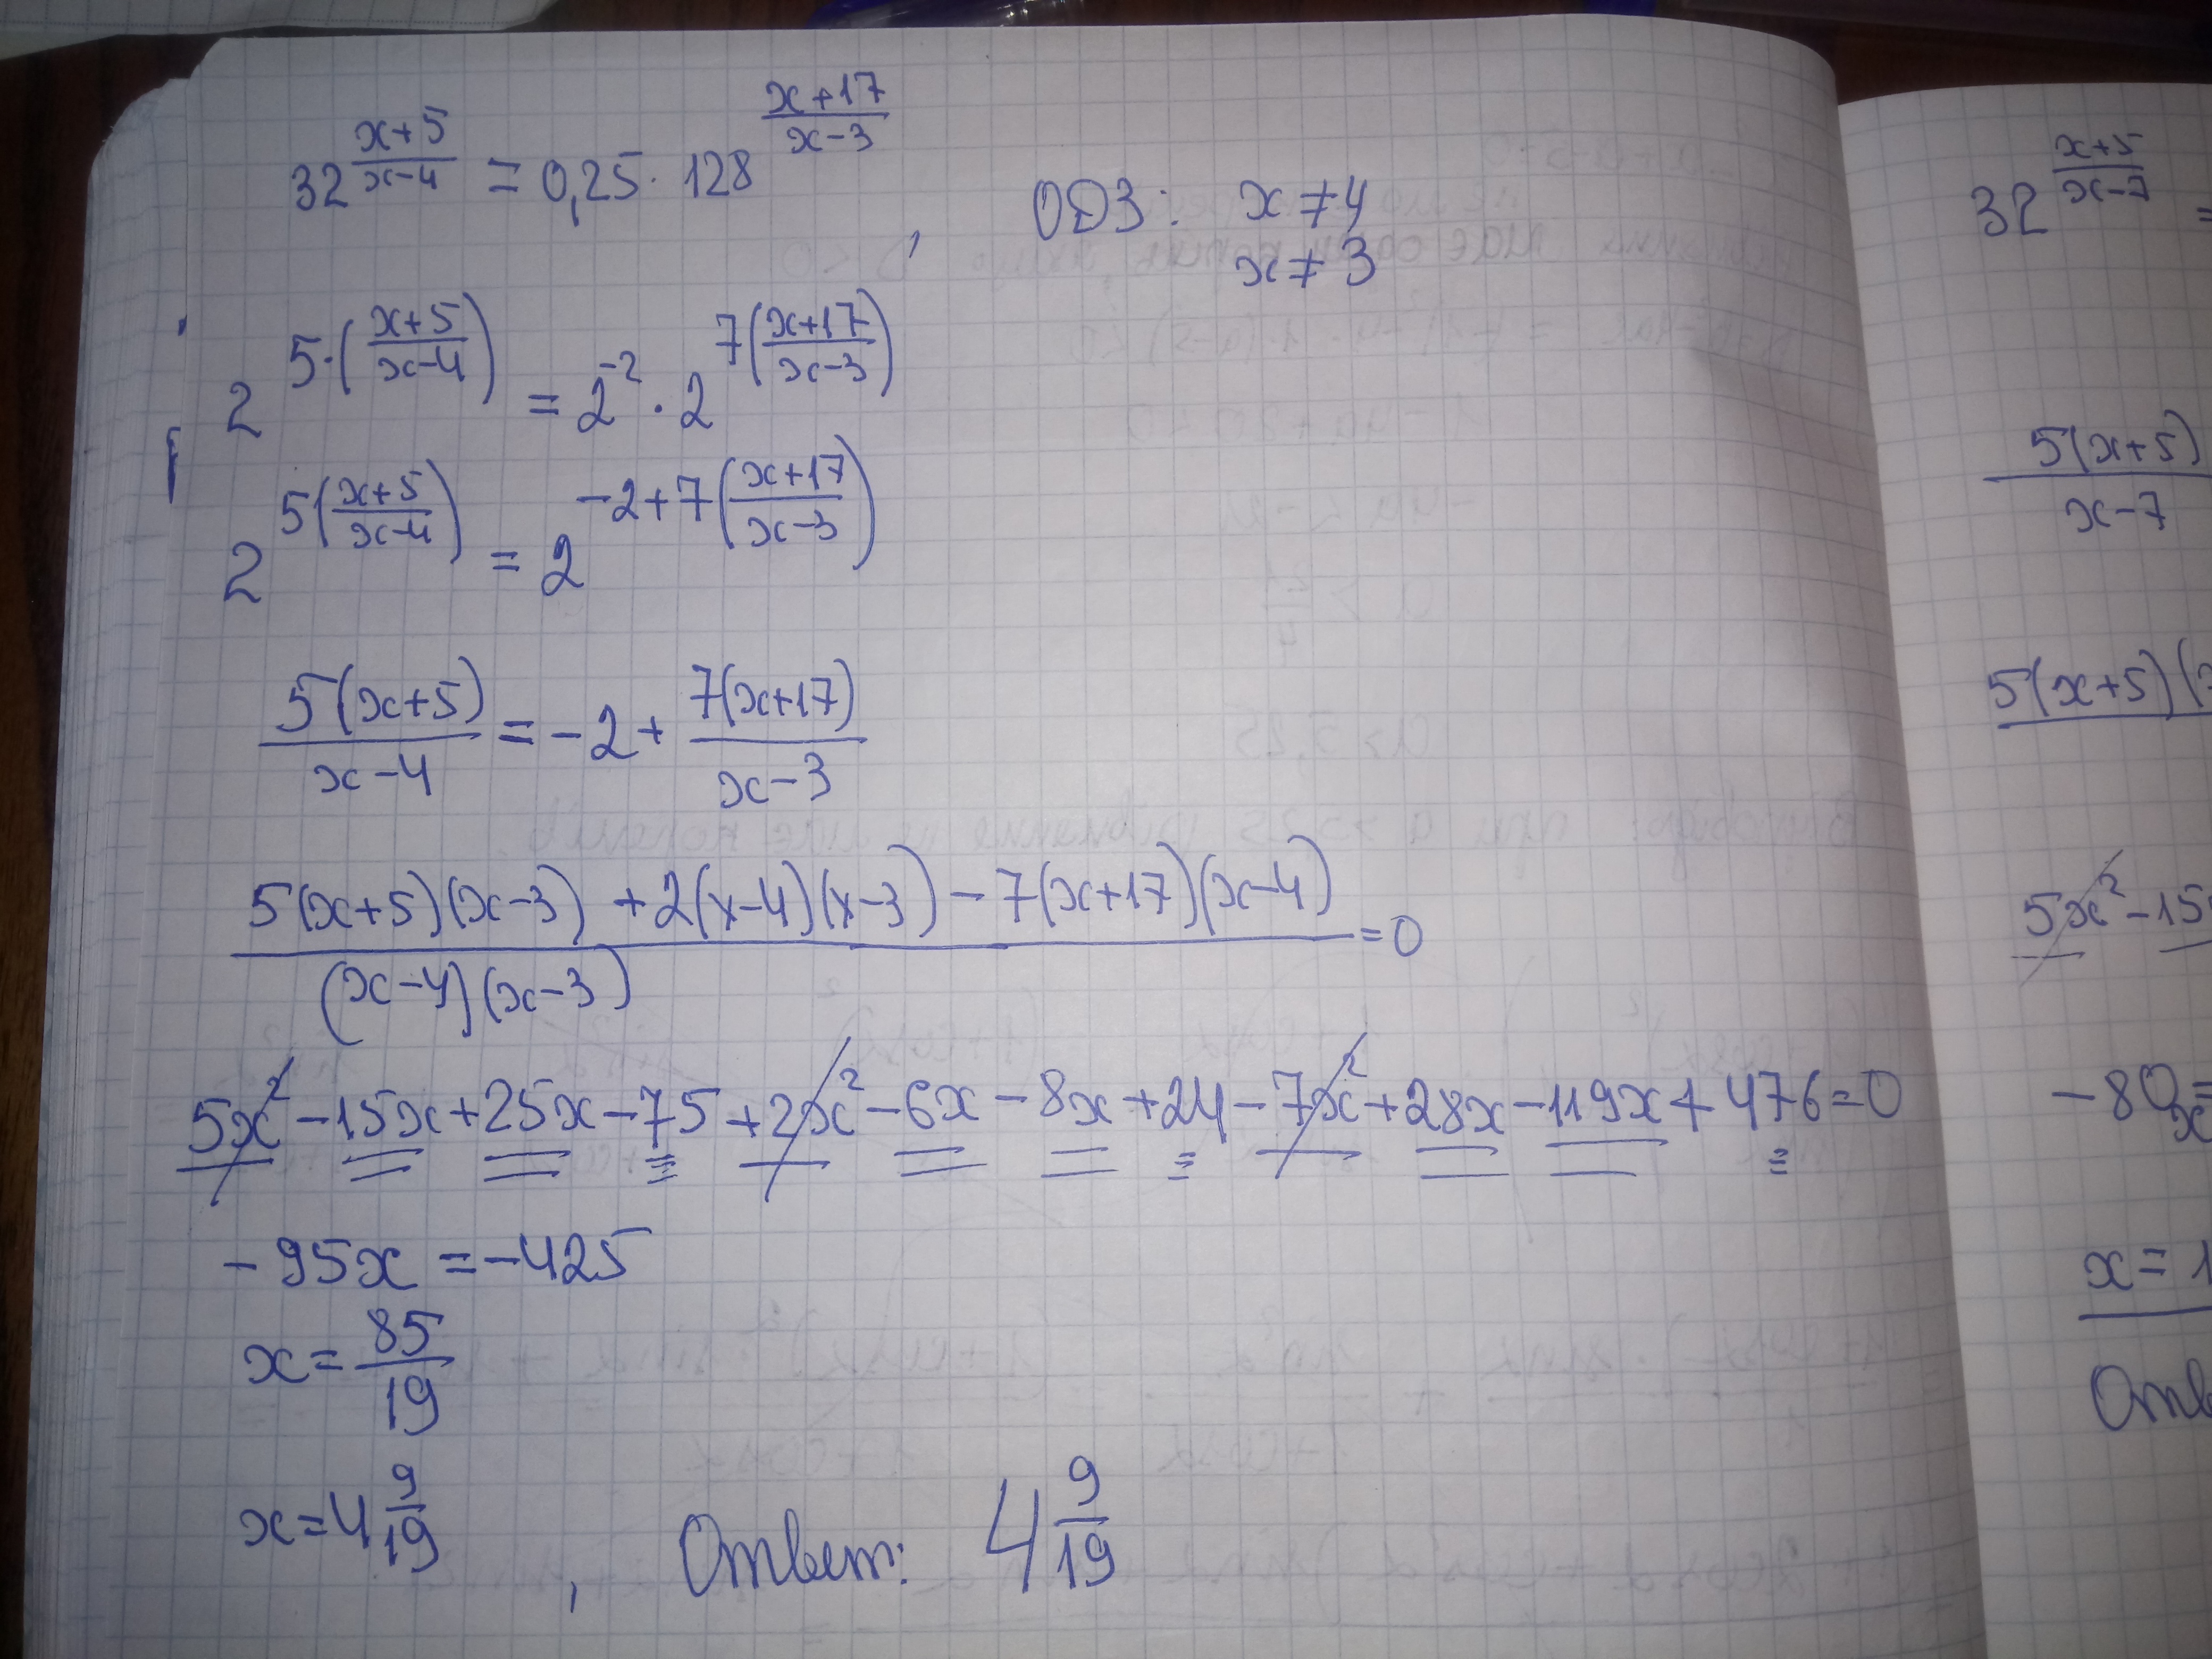 32^((x+5)/(x-4)) = 0,25 · 128^((x+17)/(x-3)) ,
ОДЗ: x ≠ 4
x ≠ 3
2^(5·((x+5)/(x-4))) = 2^(-2) · 2^(7((x+17)/(x-3)))
2^(5((x+5)/(x-4))) = 2^(-2+7((x+17)/(x-3)))
5(x+5)/(x-4) = -2 + 7(x+17)/(x-3)
(5(x+5)(x-3) + 2(x-4)(x-3) - 7(x+17)(x-4))/((x-4)(x-3)) = 0
5x² - 15x + 25x - 75 + 2x² - 6x - 8x + 24 - 7x² + 28x - 119x + 476 = 0
-95x = -425
x = 85/19
x = 4 9/19 , Ответ: 4 9/19
32^((x+5)/(x-7)) =
5(x+5)
x-7
5(x+5)(
5x² - 15
-80
x = 1